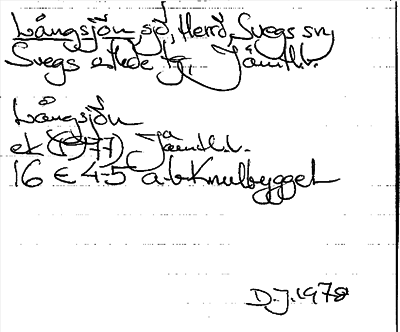 Långsjön, sjö, Herrö, Svegs sn,
Svegs tg, Jämtl.l.
Långsjön
ek (1977) Jämtl.l.
16 E 4-5 a-b Knulbygget
D.J. 1978